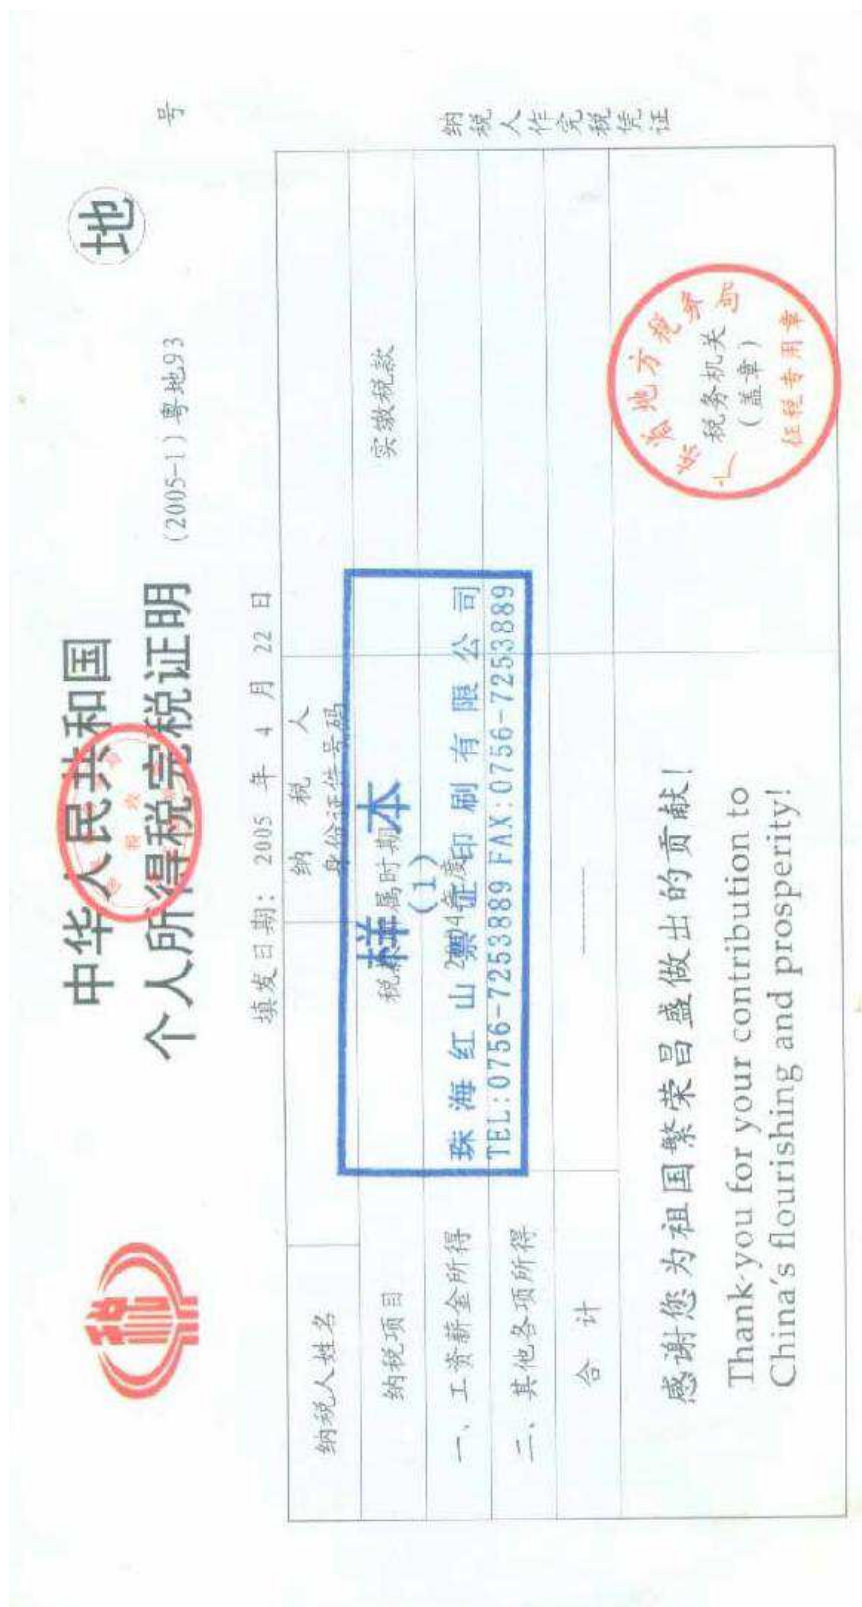 税
中华人民共和国
个人所得税完税证明
地
(2005-1)粤地93
号
填发日期: 2005 年 4 月 22 日
纳税人姓名
纳 税 人
身份证件号码
纳税项目
税款所属时期
实缴税款
一、工资薪金所得
2004年度
二、其他各项所得
合 计
样本
(1)
珠海红山票证印刷有限公司
TEL:0756-7253889 FAX:0756-7253889
感谢您为祖国繁荣昌盛做出的贡献!
Thank you for your contribution to
China's flourishing and prosperity!
广东省地方税务局
税务机关
(盖章)
征税专用章
纳税人作完税凭证